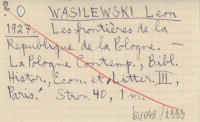 ? O WASILEWSKI Leon
1927. Les frontières de la
République de la Pologne. —
La Pologne Contemp., Bibl.
Histor., Econ. et Litter. III,
Paris. Stron 40, 1 m.